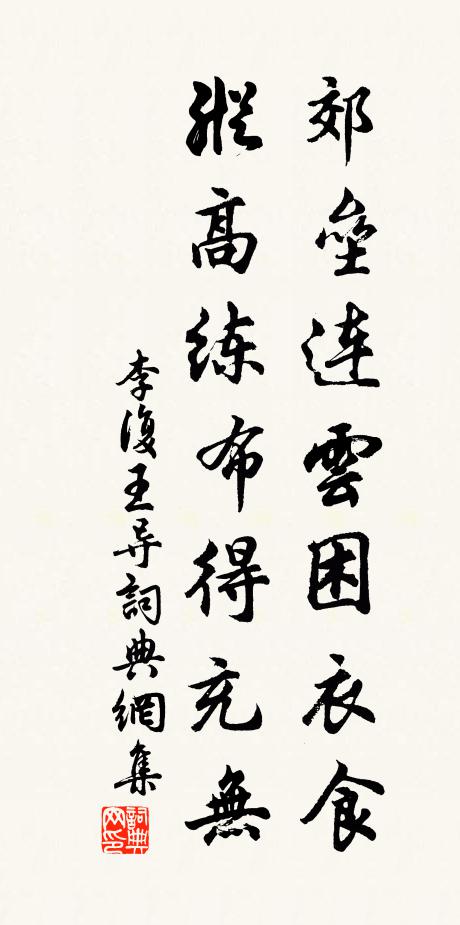 郊壘連雲困衣食
縱高練布得充無
李復王导詞典網集
詞典网印